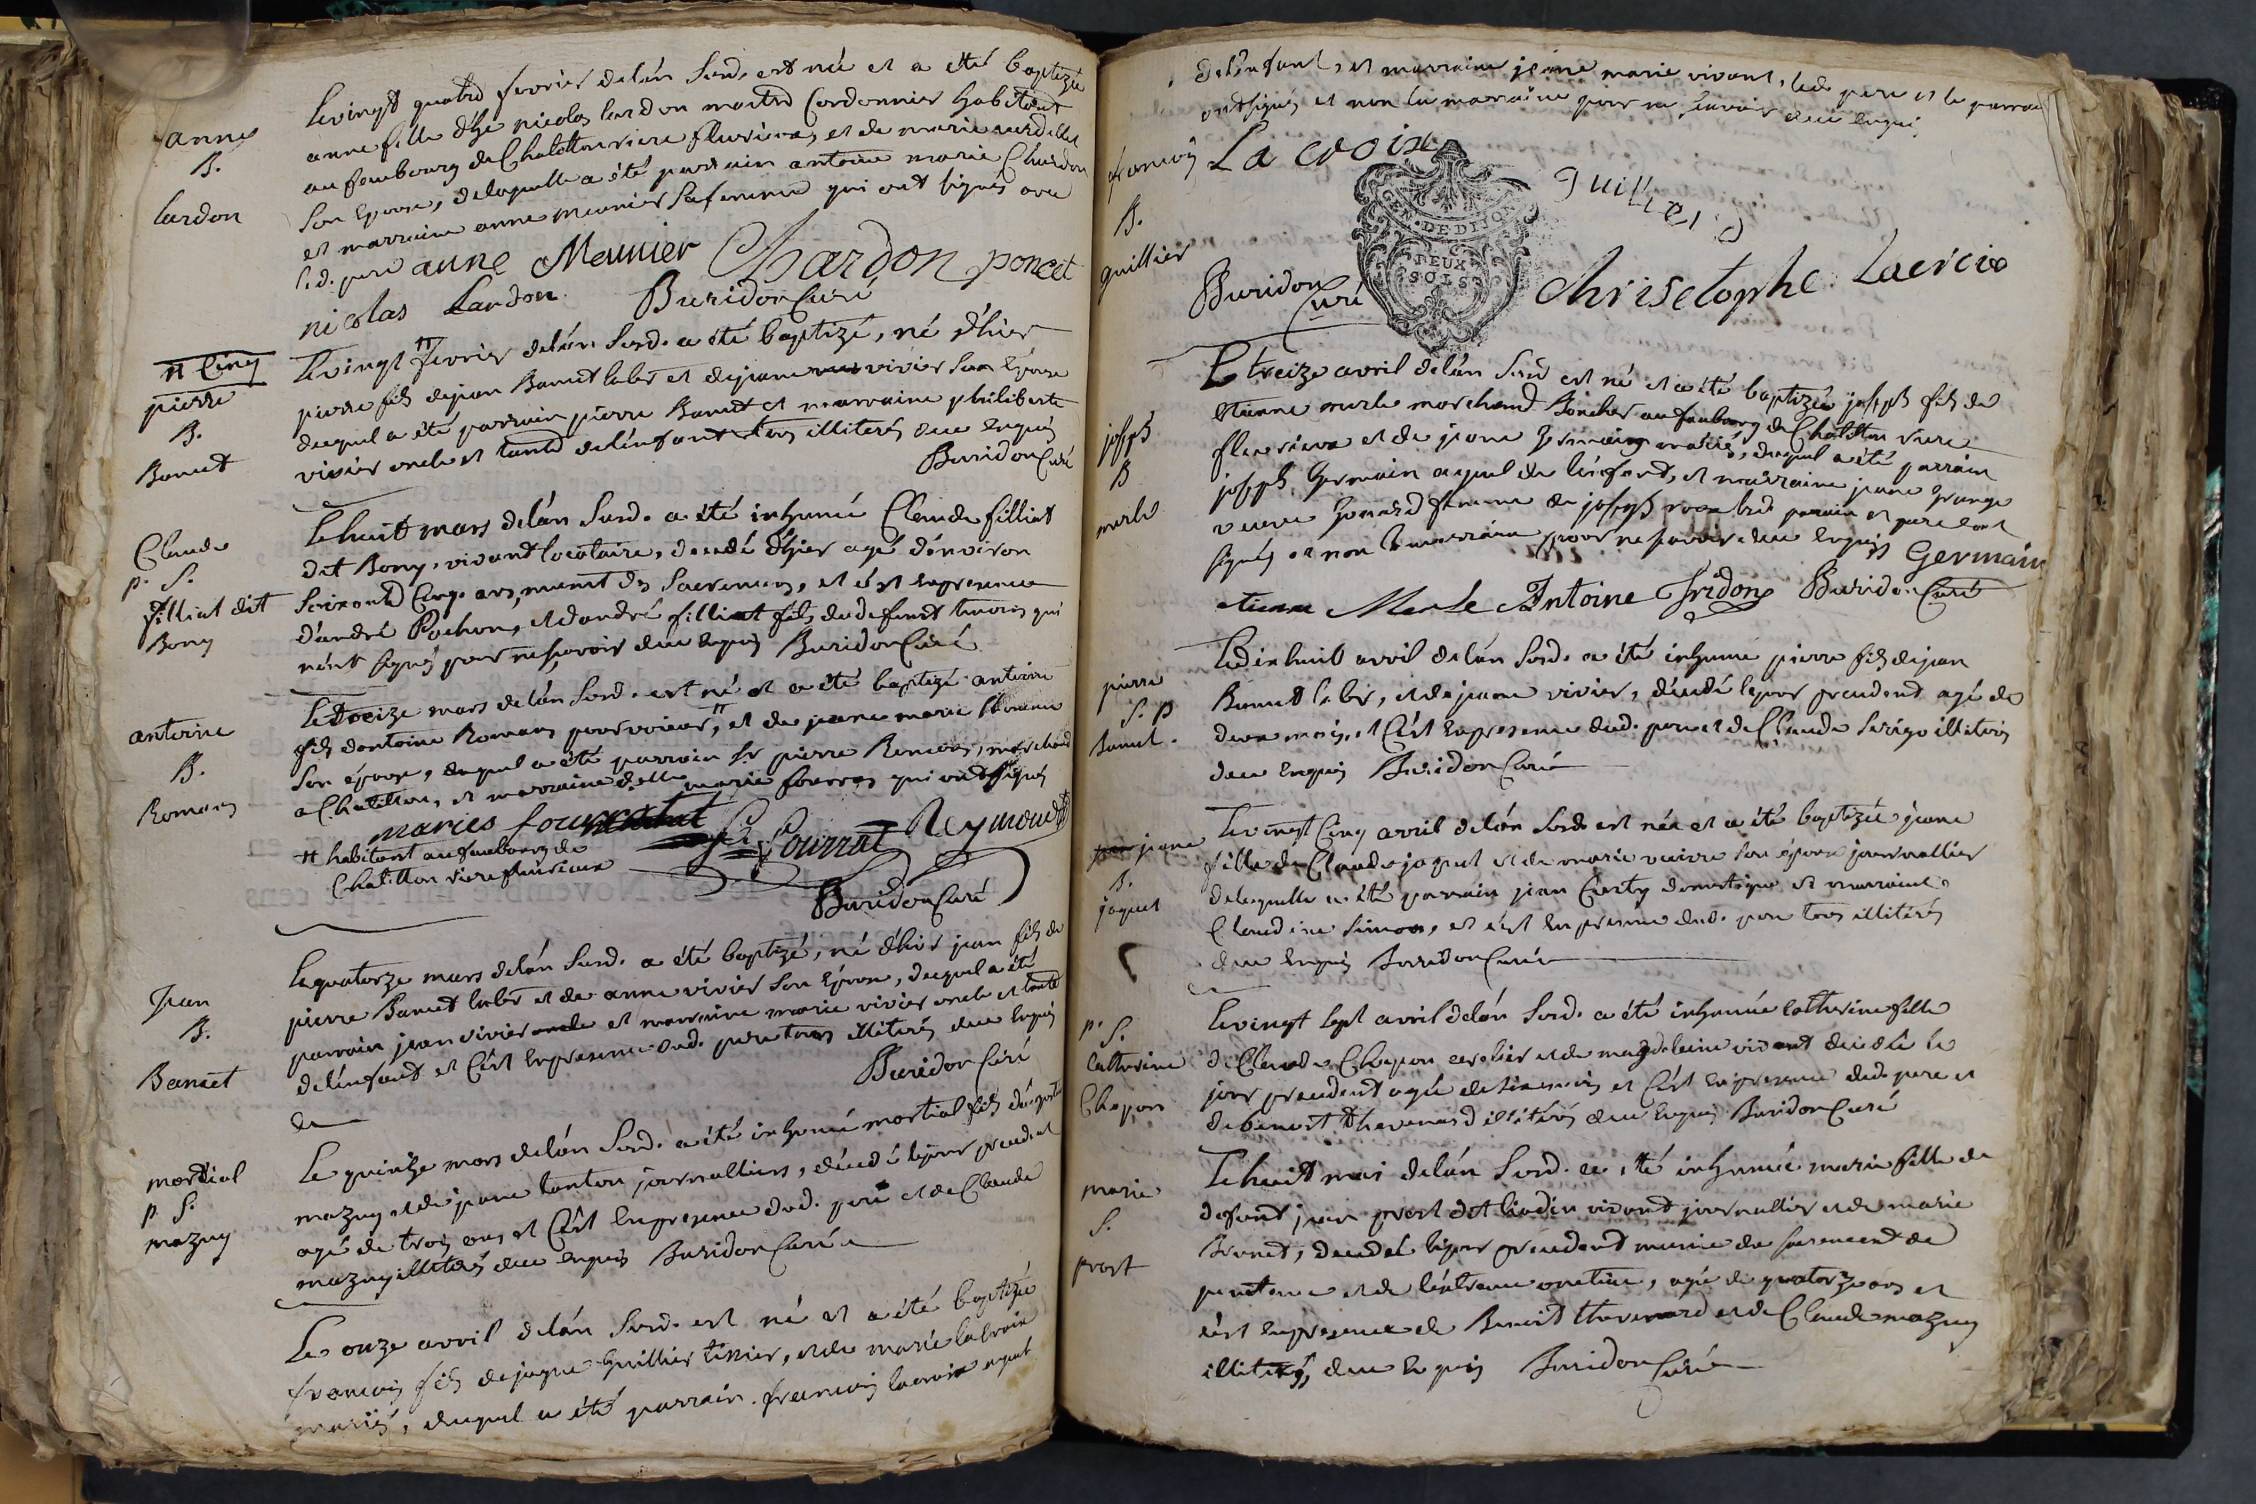 anne
B.
Lardon
Le vingt quatre fevrier de lán Susd. est née et a été baptizée
anne fille d'hte nicolas lardon maitre Cordonnier habitant
au fauxbourg de Chatillon riere fleurieux, et de marie
Son Epouse, de laquelle a été parrain antoine marie Chardon
et marraine anne meunier Sa femme qui ont signés avec
led. pere anne Meunier Chardon poncet
nicolas Lardon Buridon Curé
# Cinq
pierre
B.
Banut
Le vingt # fevrier de lán Susd. a été baptizé, né d'hier
pierre fils de jean Banut labr et de jeane vivier son Epouse
duquel a été parrain pierre Banut et marraine philiberte
vivier oncle et tante de lénfant tous illiterés de ce Enquis
Buridon Curé
Claude
p. S.
filliat dit
Bony
Le huit mars de lán Susd. a été inhumé Claude filliat
dit Bony, vivant locataire, decedé d'hier agé dénviron
Soixante Cinq ans, munit des Sacremens, et c'est Enpresence
d'andré Pochon, et dandré filliat fils du defunt temoins qui
nónt signés pour ne sçavoir de ce Enquis Buridon Curé
antoine
B.
Romans
Le treize mars de lán Susd. est né et a été baptizé antoine
fils dantoine Romans #, et de jeane marie
Son épouse, duquel a été parrain Sr pierre marchand
a Chatillon, et marraine delle marie fourras qui ont signés
maries four
fourrat Reymond
# habitant au fauxbourg de
Chatillon riere fleurieux
Buridon Curé
Jean
B.
Banut
Le quatorze mars de lán Susd. a été baptizé, né d'hier jean fils de
pierre Banut labr et de anne vivier Son Epouse, duquel a été
parrain jean vivier et marraine marie vivier oncle et tante
de lénfant et C'est Enpresence dud. pere tous illiterés de ce Enquis
Buridon Curé
martial
p. S.
mazuy
Le quinze mars de lán Susd. a été inhumé martial fils
mazuy et de jeane tanton journalliers, decedé le jour precedent
agé de trois ans et C'est Enpresence dud. pere et de Claude
mazuy illiterés de ce Enquis Buridon Curé
Le onze avril de lán Susd. est né et a été baptizé
francois fils de jaque Guillier tissier, et de marie la Croix
mariés, duquel a été parrain francois lacroix ayeul
de lénfant, et marraine jeane marie vivant, led. pere et le parrain
ont signés et non la maraine pour ne sçavoir de ce Enquis
francois
B.
guillier
La croix
Guillier
GEN. DE DIJON
DEUX
SOLS
Buridon Curé
Christophe Lacroix
joseph
B
merle
Le treize avril de lán Susd est né et a été baptizé joseph fils de
etienne merle marchand Boucher au fauxbourg de Chatillon riere
fleurieux et de jeane Germain mariés, duquel a été parrain
joseph Germain ayeul de lénfant, et marraine jeane grange
femme de joseph led. parain et pere ont
signés et non la marraine pour ne sçavoir de ce Enquis Germain
etienne Merle Antoine Buridon Curé
pierre
S. p
banut.
Le dix huit avril de lán Susd. a été inhumé pierre fils de jean
Banut labr, et de jeane vivier, décedé le jour precedent agé de
deux mois, et C'est Enpresence dud. pere et de Claude illiterés
de ce Enquis Buridon Curé
jeane
B.
jaquet
Le vingt Cinq avril de lán Susd. est née et a été baptizée jeane
fille de Claude jaquet et de marie son épouse journallier
de laquelle a été parrain jean domestique et marraine
Claudine Simon, et c'est Enpresence dud. pere tous illiterés
de ce Enquis Buridon Curé
p. S.
Catherine
Chapon
Le vingt Sept avril de lán Susd. a été inhumée Catherine fille
de Claude Chapon et de magdeleine vivant decedée le
jour precedent agée de six mois et C'est Enpresence dud. pere et
de benoit thevenard illiterés de ce Enquis Buridon Curé
marie
S.
prost
Le huit mai de lán Susd. a été inhumée marie fille de
defunt jean prost dit vivant journallier et de marie
Brunet, decedée le jour precedent munie du sacrement de
penitence et de léxtreme onction, agée de quatorze ans et
c'est Enpresence de Benoit thevenard et de Claude mazuy
illiterés, de ce Enquis Buridon Curé